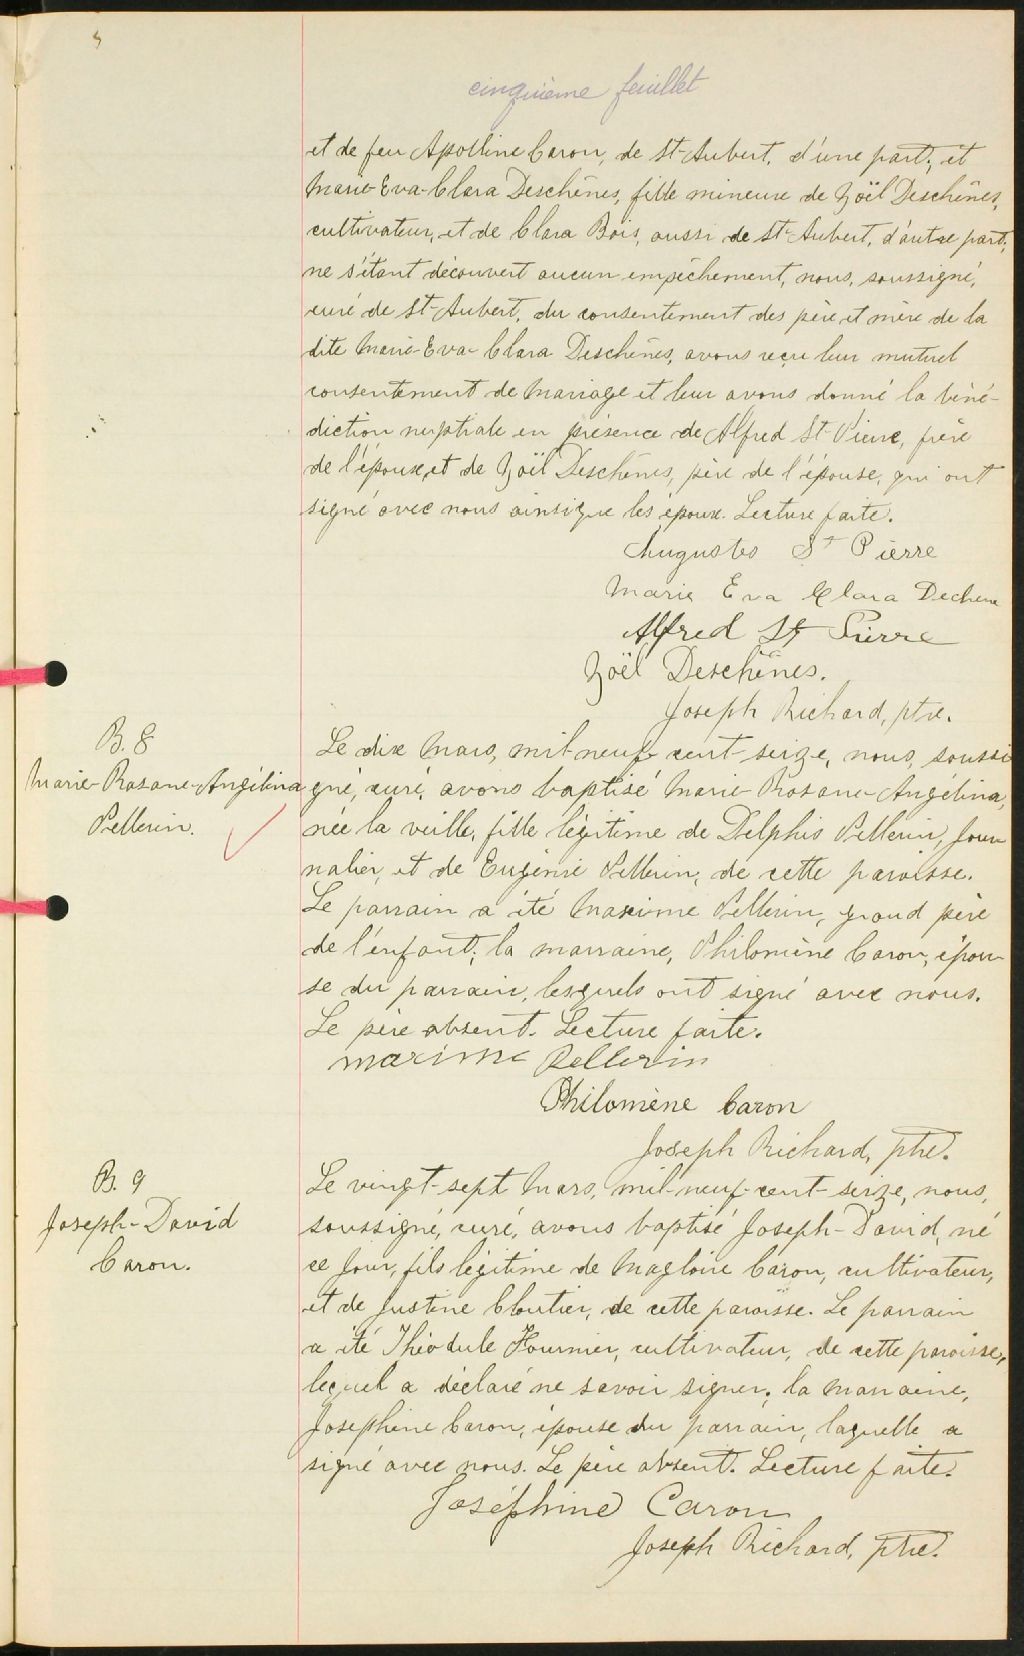 5
cinquième feuillet
et de feu Apolline Caron, de St-Aubert, d'une part; et
Marie-Eva-Clara Deschênes, fille mineure de Zoël Deschênes,
cultivateur, et de Clara Bois, aussi de St-Aubert, d'autre part;
ne s'étant découvert aucun empêchement, nous, soussigné,
curé de St-Aubert, du consentement des père et mère de la
dite Marie-Eva-Clara Deschênes, avons reçu leur mutuel
consentement de mariage et leur avons donné la béné-
diction nuptiale en présence de Alfred St-Pierre, frère
de l'époux, et de Zoël Deschênes, père de l'épouse, qui ont
signé avec nous ainsi que les époux. Lecture faite.
Auguste St Pierre
Marie Eva Clara Dechene
Alfred St Pierre
Zoël Deschênes.
Joseph Richard, ptre.
B. 8
Marie-Rosane-Angélina
Pellerin.
Le dix Mars, mil-neuf-cent-seize, nous, soussi
gné, curé, avons baptisé Marie-Rosane-Angélina,
née la veille, fille légitime de Delphis Pellerin, Jour
nalier, et de Eugénie Pellerin, de cette paroisse.
Le parrain a été Maxime Pellerin, grand père
de l'enfant; la marraine, Philomène Caron, épou
se du parrain, lesquels ont signé avec nous.
Le père absent. Lecture faite.
Maxime Pellerin
Philomène Caron
Joseph Richard, ptre.
B. 9
Joseph-David
Caron.
Le vingt-sept Mars, mil-neuf-cent-seize, nous,
soussigné, curé, avons baptisé Joseph-David, né
ce jour, fils légitime de Magloire Caron, cultivateur,
et de Justine Cloutier, de cette paroisse. Le parrain
a été Théodule Fournier, cultivateur, de cette paroisse,
lequel a déclaré ne savoir signer; la marraine,
Joséphine Caron, épouse du parrain, laquelle a
signé avec nous. Le père absent. Lecture faite.
Joséphine Caron
Joseph Richard, ptre.